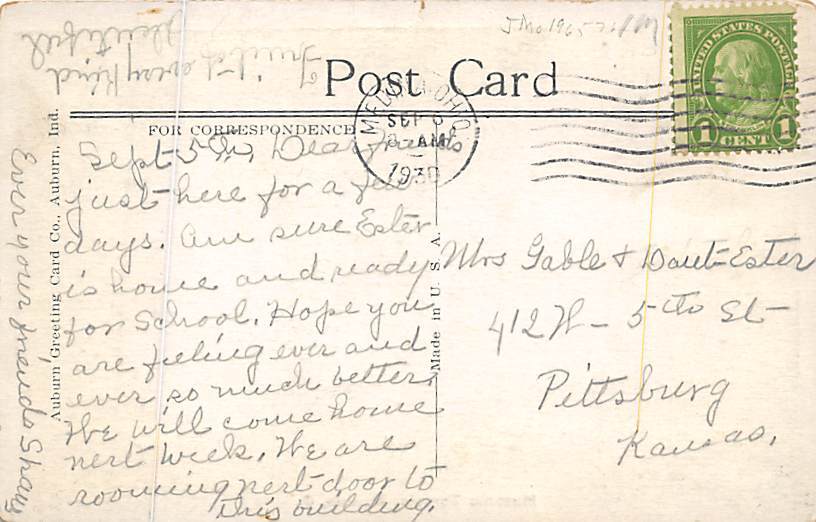 J Mo 1965
Post Card
FOR CORRESPONDENCE
MEDINA OHIO
SEP 6
AM
1930
UNITED STATES POSTAGE
FRANKLIN
1 CENT 1
Sept 5th, Dear friends
just here for a few
days. Am sure Ester
is home and ready
for School. Hope you
are feeling ever and
ever so much better.
We will come home
next week, We are
rooming next door to
this building.
Fruit of every kind
plentiful
Ever your friends
Auburn Greeting Card Co., Auburn, Ind.
Made in U. S. A.
Mrs Gable & Daut-Ester
412 W - 5th St
Pittsburg
Kansas.